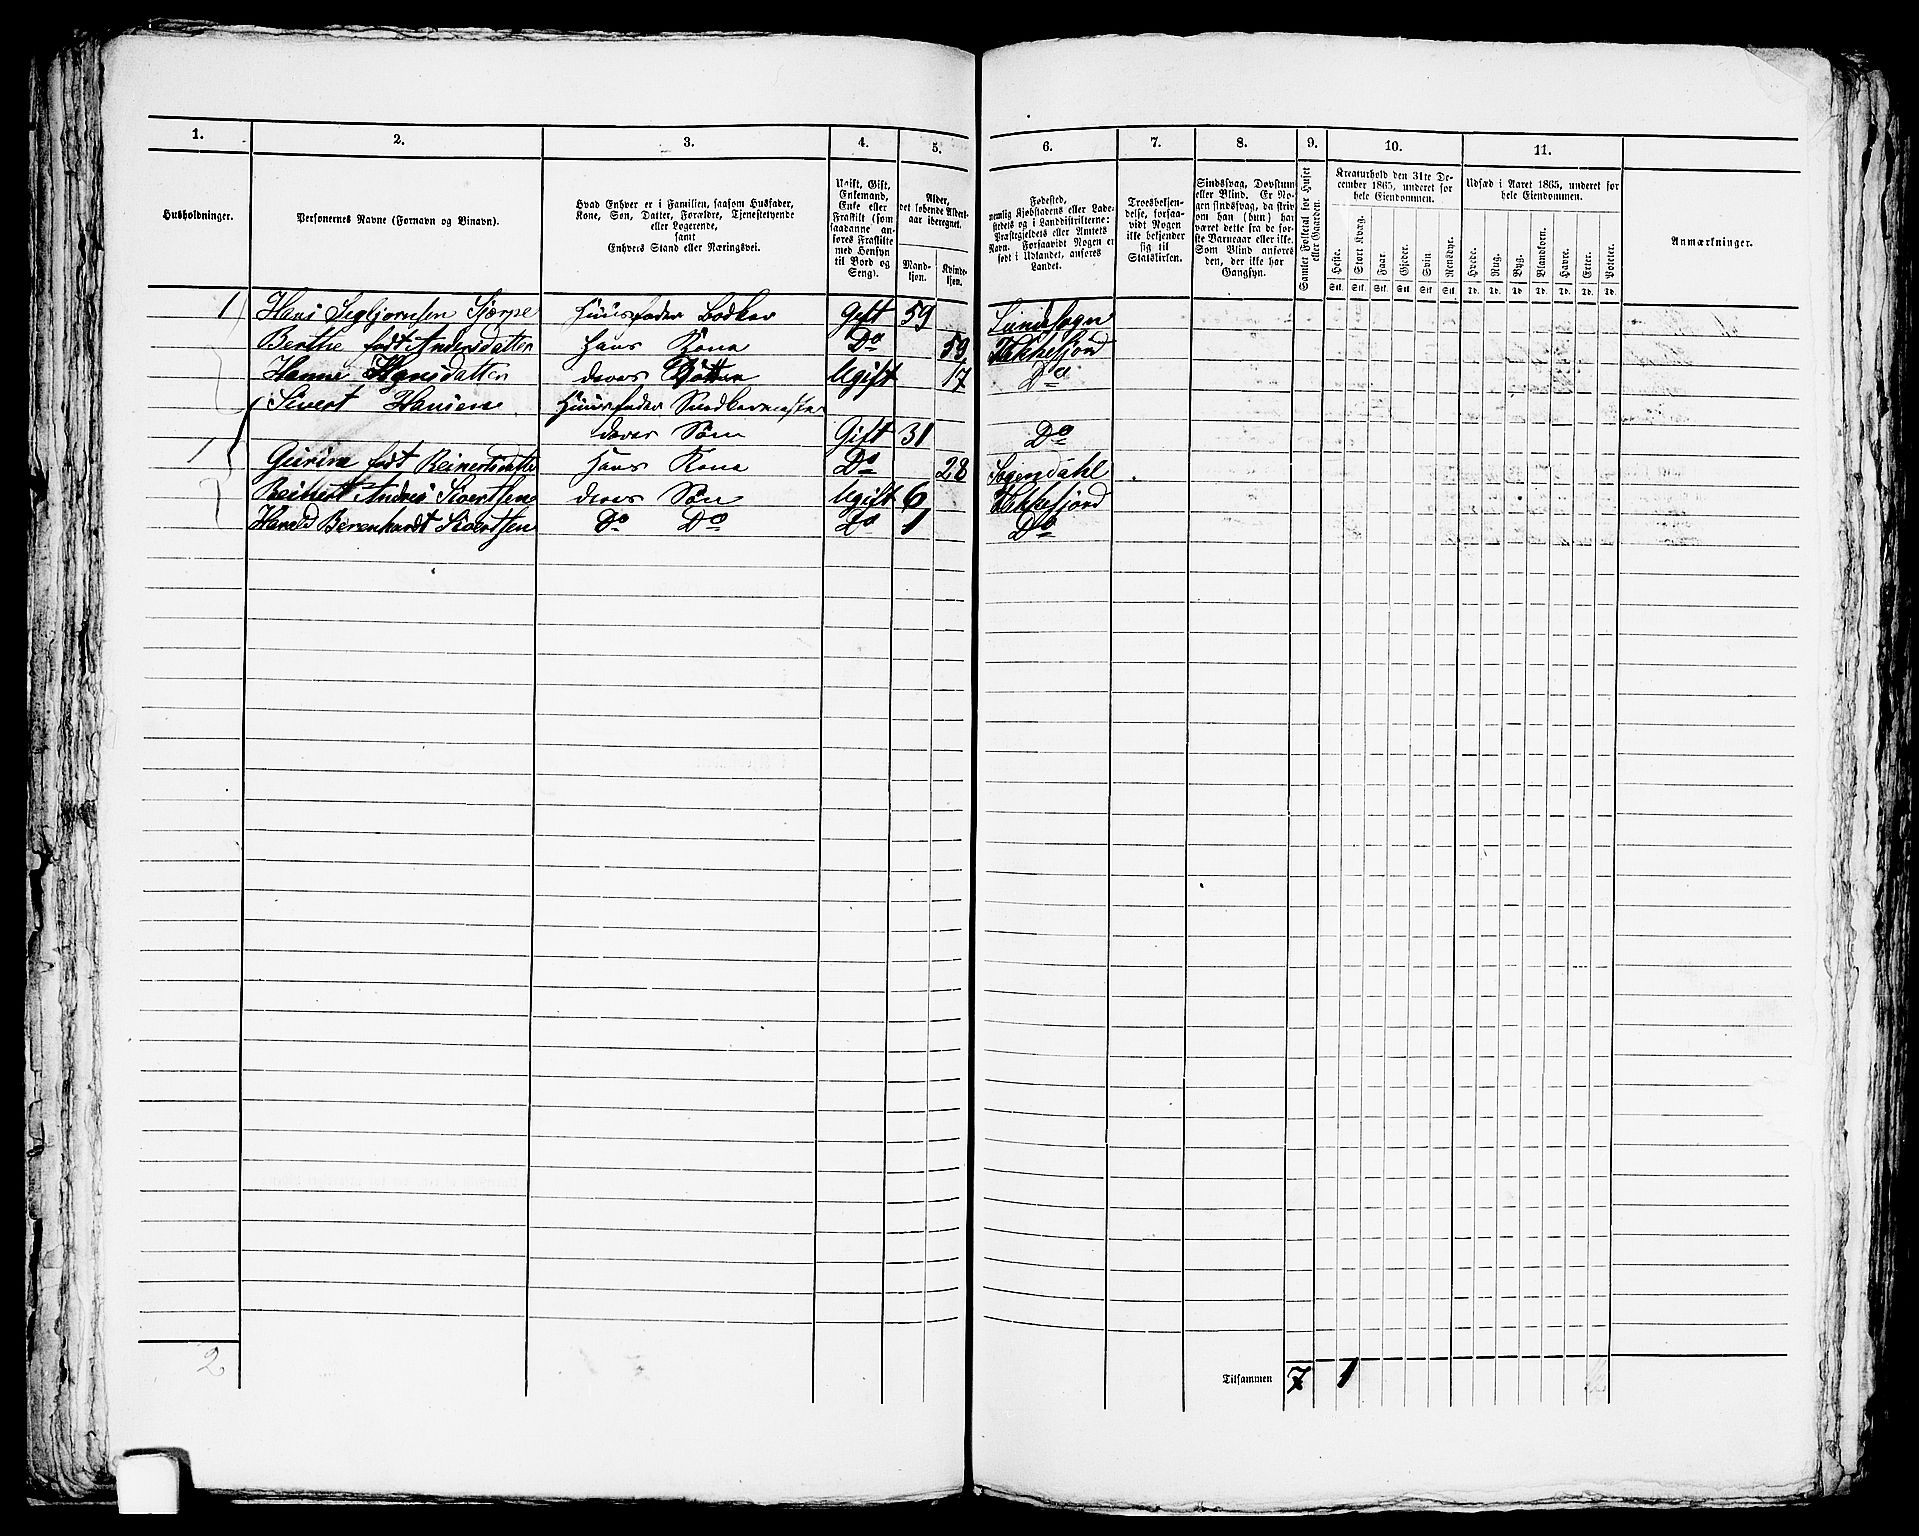 1. 2. 3. 4. 5. 6. 7. 8. 9. 10. 11.
Husholdninger.
Personernes Navne (Fornavn og Binavn).
Hvad Enhver er i Familien, saasom Husfader,
Kone, Søn, Datter, Forældre, Tjenestetyende
eller Logerende,
samt
Enhvers Stand eller Næringsvei.
Ugift, Gift,
Enkemand,
Enke eller
Fraskilt (som
saadanne an-
føres Fraskilte
med Hensyn
til Bord og
Seng).
Alder,
det løbende Alders-
aar iberegnet.
Mand-
kjøn.
Kvinde-
kjøn.
Fødested,
nemlig Kjøbstadens eller Lade-
stedets og i Landdistrikterne:
Præstegjeldets eller Amtets
Navn. Forsaavidt Nogen er
født i Udlandet, anføres
Landet.
Troesbekjen-
delse, forsaa-
vidt Nogen
ikke bekjender
sig til
Statskirken.
Sindssvag, Døvstum
eller Blind. Er No-
gen sindssvag, da skriv
om han (hun) har
været dette fra de før-
ste Barneaar eller ikke.
Som Blind anføres
den, der ikke har
Gangsyn.
Samlet Folketal for Huset
eller Gaarden.
Kreaturhold den 31te De-
cember 1865, underet for
hele Eiendommen.
Heste. Stort Kvæg. Faar. Gjeder. Svin Rensdyr.
Stk. Stk. Stk. Stk. Stk. Stk.
Udsæd i Aaret 1865, underet for
hele Eiendommen.
Hvede. Rug. Byg. Blandkorn. Havre. Erter. Poteter.
Td. Td. Td. Td. Td. Td. Td.
Anmærkninger.
1 Hans Segbjørnsen Gift 59 Lunde Sogn
Berthe født Andersdatter Hans Kone Do 59 Flekkefjord
Hanne Hansdatter deres Datter Ugift 17 Do
Sivert Hansen Huusfader
deres Søn Gift 31 Do
1 Gurine født Reinertsdatter Hans Kone Do 28 Sogendahl
Reinert Andreas Sivertsen deres Søn Ugift 6 Flekkefjord
Harald Berenhardt Sivertsen Do Do Do 1 Do
2 Tilsammen 7 1